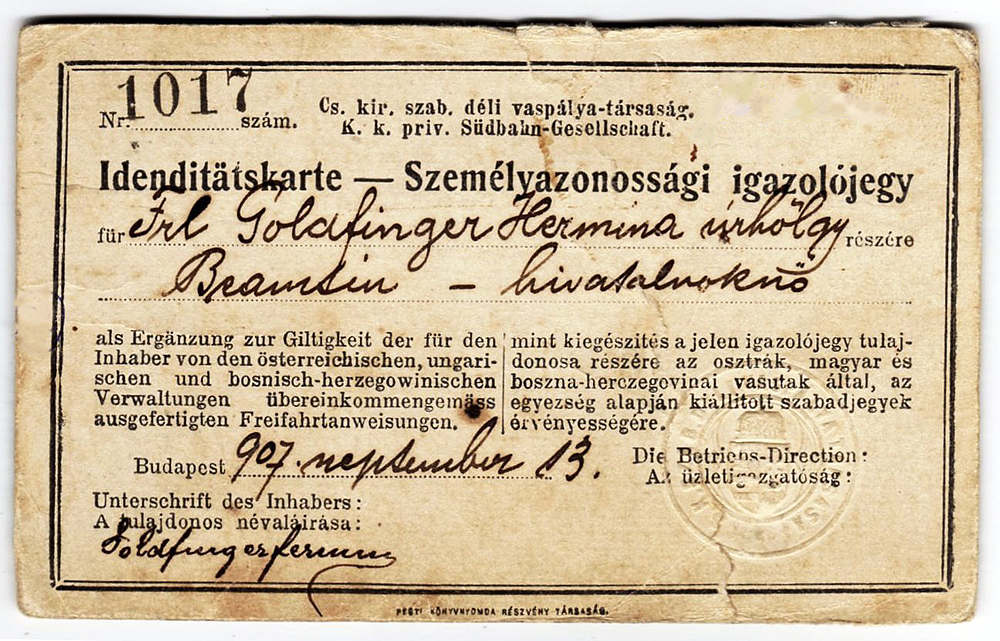 Nr. 1017 szám.
Cs. kir. szab. déli vaspálya-társaság.
K. k. priv. Südbahn-Gesellschaft.
Idenditätskarte — Személyazonossági igazolójegy
für Frl Goldfinger Hermina úrhölgy részére
Beamtin – hivatalnoknő
als Ergänzung zur Giltigkeit der für den
Inhaber von den österreichischen, ungari-
schen und bosnisch-herzegowinischen
Verwaltungen übereinkommengemäss
ausgefertigten Freifahrtanweisungen.
mint kiegészítés a jelen igazolójegy tulaj-
donosa részére az osztrák, magyar és
boszna-herczegovinai vasutak által, az
egyezség alapján kiállított szabadjegyek
érvényességére.
Budapest 907. september 13.
Die Betriebs-Direction:
Az üzletigazgatóság:
Unterschrift des Inhabers:
A tulajdonos névaláirása:
Goldfinger
PESTI KÖNYVNYOMDA RÉSZVÉNY TÁRSASÁG.